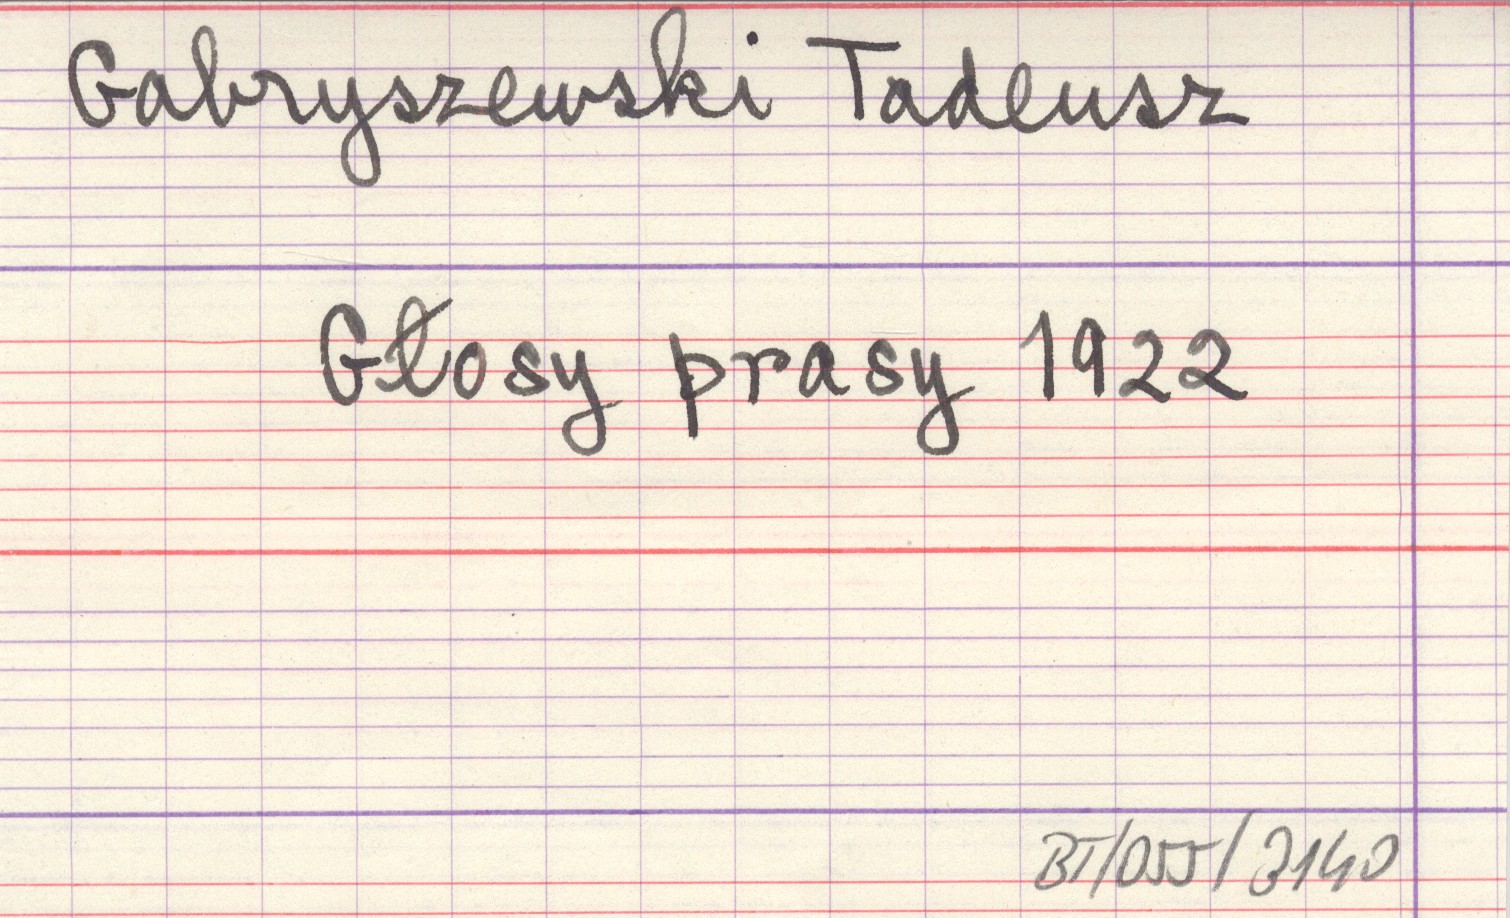 Gabryszewski Tadeusz
Głosy prasy 1922
BT/055/3140